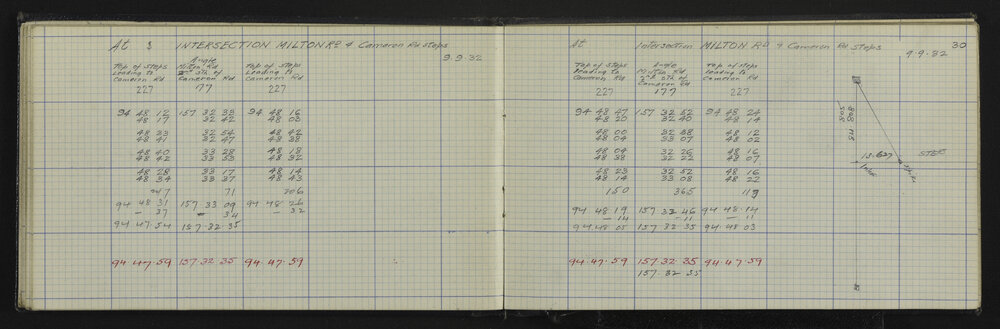 At & INTERSECTION MILTON RD & Cameron Rd Steps
9.9.32
Top of Steps Angle Top of Steps
Leading to Milton Rd Leading to
Cameron Rd Cameron Rd Cameron Rd
227 77 227
94 48 12 157 32 33 94 48 16
48 17 32 42 48 03
48 23 32 54 48 42
48 41 32 47 48 38
48 40 33 28 48 18
48 42 33 53 48 32
48 28 33 17 48 14
48 34 33 37 48 43
247 71 206
94 48 31 157 33 09 94 48 26
- 37 - 34 - 32
94 47 54 157.32.35
94.47.59 157.32.35 94.47.59
At Intersection MILTON RD & Cameron Rd Steps
9.9.32 30
Top of Steps Angle Top of Steps
Leading to Milton Rd Leading to
Cameron Rd Cameron Rd Cameron Rd
227 177 227
94 48 47 157 32 52 94 48 24
48 20 32 40 48 14
48 00 32 38 48 12
48 04 33 07 48 02
48 04 32 26 48 16
48 38 32 22 48 07
48 23 32 52 48 16
48 14 33 08 48 22
150 365 113
94 48 19 157 32 46 94 48.14
- 14 - 11 - 11
94.48 05 157.32.35 94.48 03
94.47.59 157.32 35 94.47.59
157.32 35
13.627